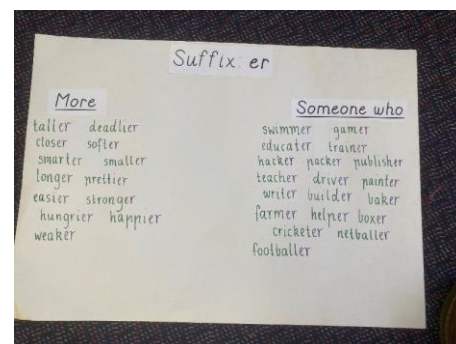 Suffix: er
More
taller deadlier
closer softer
smarter smaller
longer prettier
easier stronger
hungrier happier
weaker
Someone who
swimmer gamer
educater trainer
hacker packer publisher
teacher driver painter
writer builder baker
farmer helper boxer
cricketer netballer
footballer